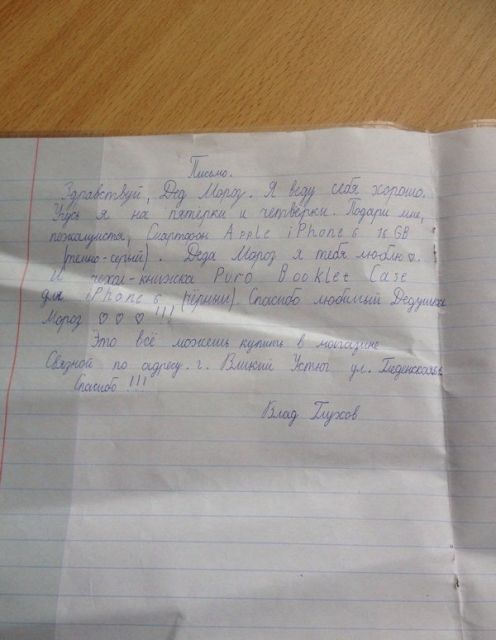 Письмо.
Здравствуй, Дед Мороз. Я веду себя хорошо.
Учусь я на пятёрки и четвёрки. Подари мне,
пожалуйста, Смартфон Apple iPhone 6 16 GB
(темно-серый). Деда Мороз я тебя люблю ♡.
И чехол-книжка Puro Booklet Case
для iPhone 6 (чёрный). Спасибо любимый Дедушка
Мороз ♡ ♡ ♡ !!!
Это всё можешь купить в магазине
Связной по адресу. г. Вликий Устюг ул.
Спасибо !!!
Влад Глухов